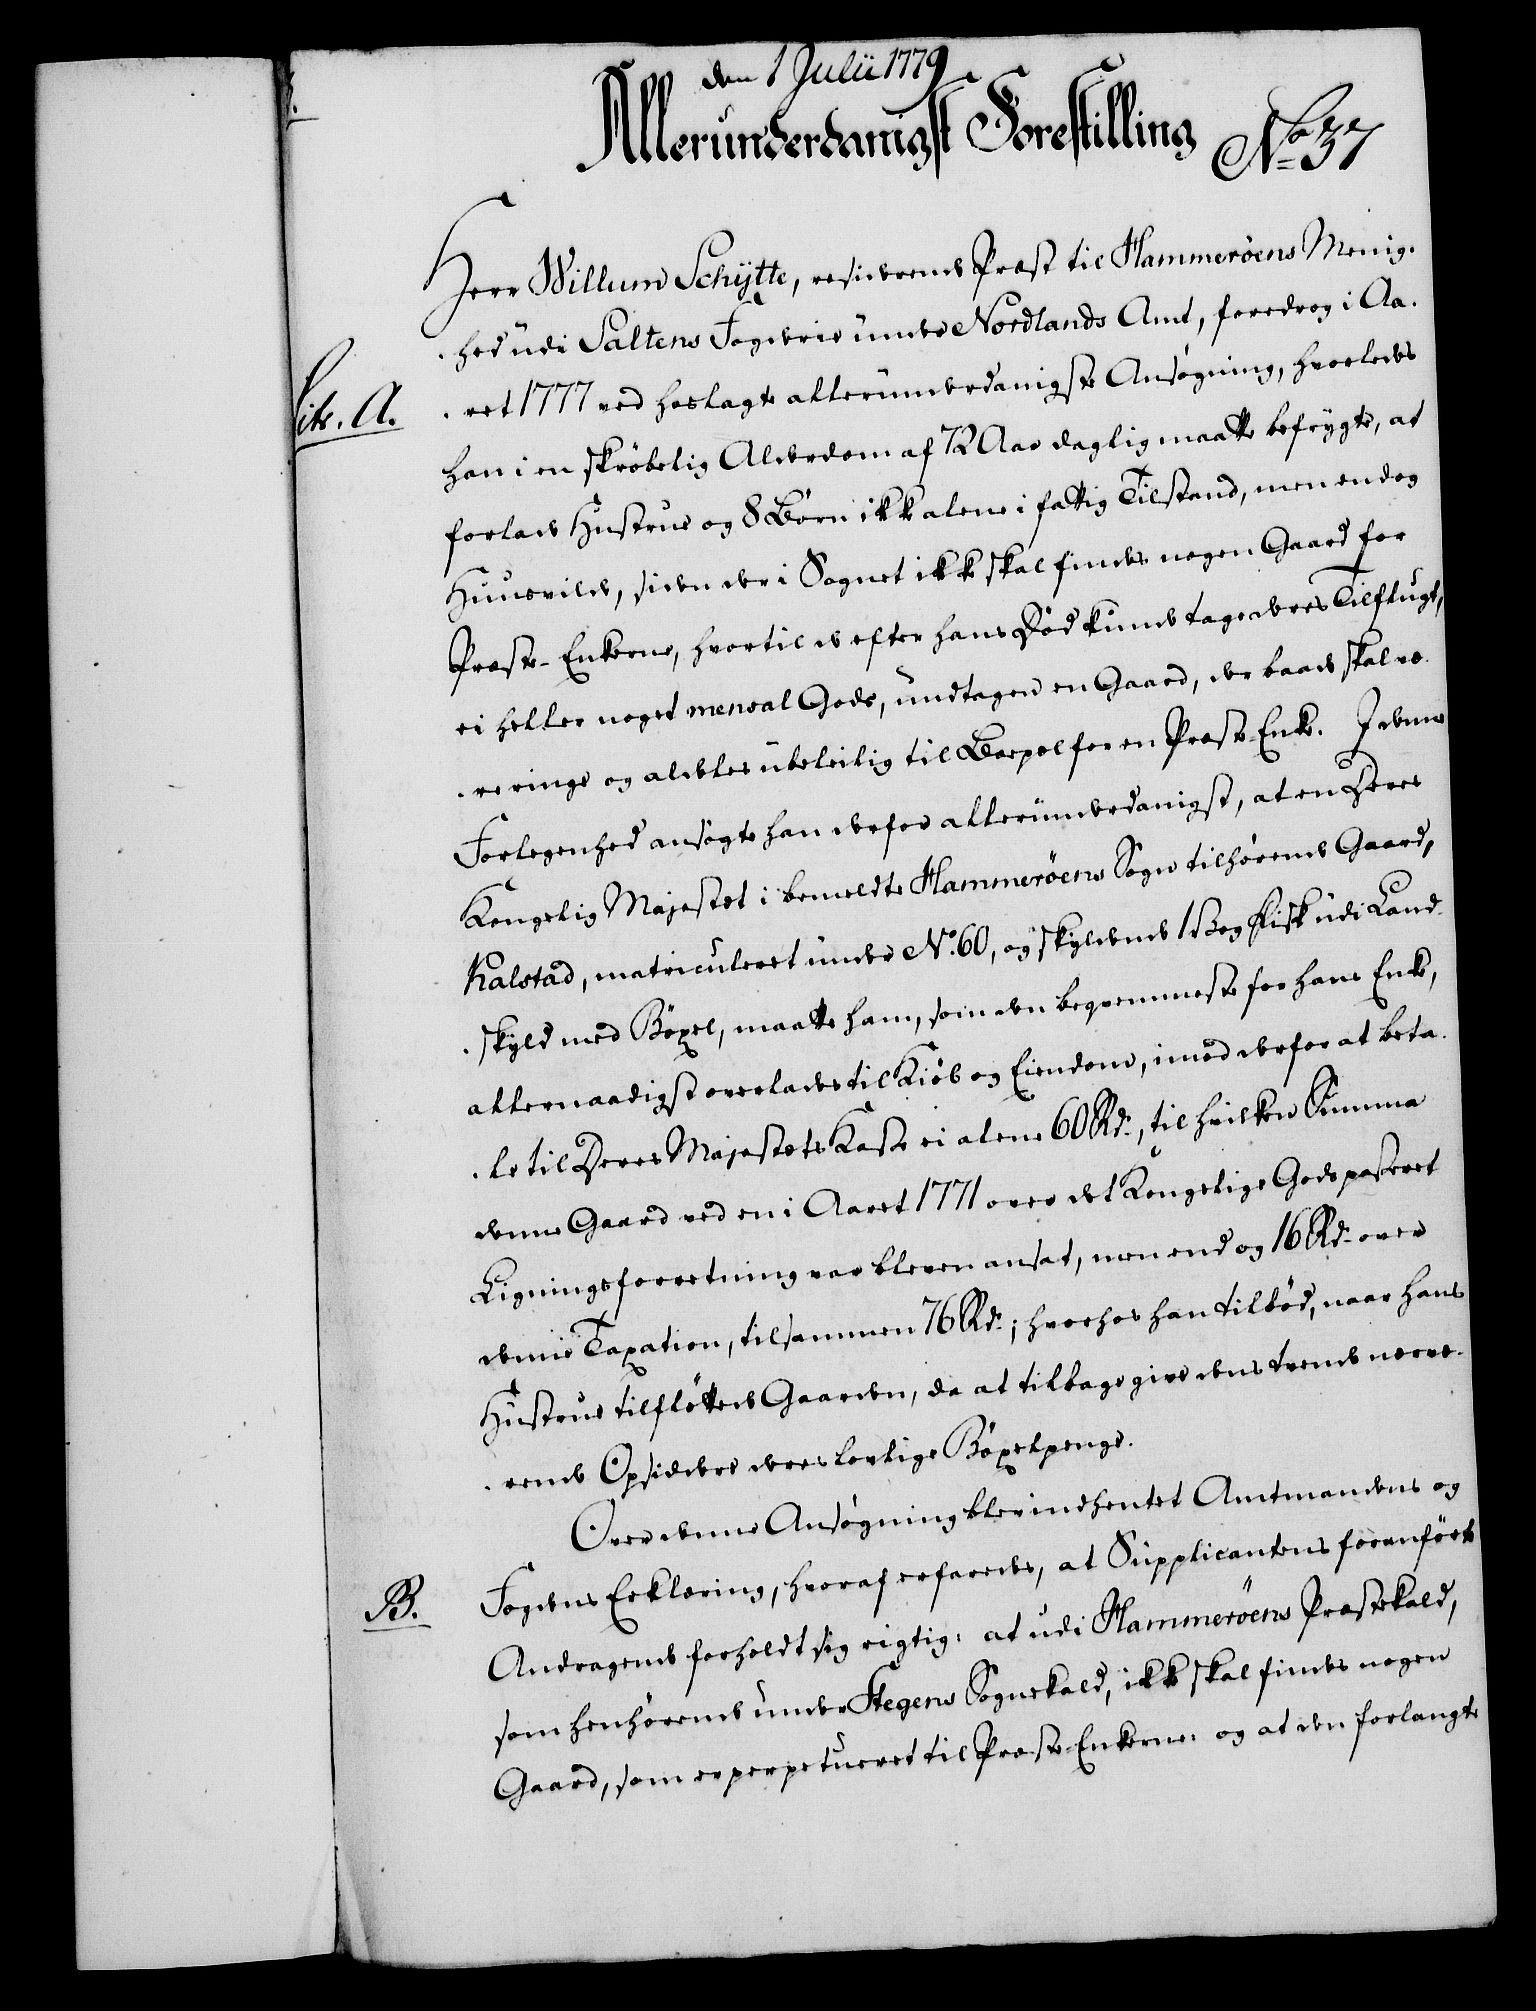 den 1 Julii 1779
Allerunderdanigst Forestilling No 37
Herr Willum Schytte, residerende Præst til Hammeröens Menig-
hed udi Saltens Fogderie under Nordlands Amt, foredrog i Aa-
Litr. A.
ret 1777 ved hoslagte allerunderdanigste Ansøgning, hvorledes
han i en skrøbelig Alderdom af 72 Aar daglig maatte befrygte, at
forlade Hustrue og 8 Börn ikke alene i fattig Tilstand, men endog
Huusvilde, siden der i Sognet ikke skal findes nogen Gaard for
Præste-Enkerne, hvortil de efter hans Død kunde tage deres Tilflugt,
ei heller noget mensal Gods, undtagen en Gaard, der baade skal væ-
re ringe og aldeles ubeleilig til Boepæl for en Præste-Enke. I denne
Forlegenhed ansøgte han derfor allerunderdanigst, at en Deres
Kongelig Majestet i bemeldte Hammeröens Sogn tilhørende Gaard,
Kalstad, matriculeret under No. 60, og skyldende 1 Vog Fisk udi Land-
skyld med Böxel, maatte ham, som den beqvemmeste for hans Enke,
allernaadigst overlades til Kiöb og Eiendom, imod derfor at beta-
le til Deres Majestets Kasse ei alene 60 Rd., til hvilken Summa
denne Gaard ved en i Aaret 1771 over det Kongelige Gods passeret
Ligningsforretning var bleven ansat, men end og 16 Rd. over
denne Taxation, tilsammen 76 Rd.; hvorhos han tilbød, naar hans
Hustrue tilfløttede Gaarden, da at tilbagegive dens tvende nærvæ-
rende Opsiddere deres lovlige Böxelpenge.
Over denne Ansøgning blev indhentet Amtmandens og
B.
Fogdens Erklæring, hvoraf erfaredes, at Supplicantens foranførte
Andragende forholdt sig rigtig: at udi Hammeröens Præstekald,
som henhørende under Stegens Sognekald, ikke skal findes nogen
Gaard, som er perpetueret til Præste-Enkerne: og at den forlangte